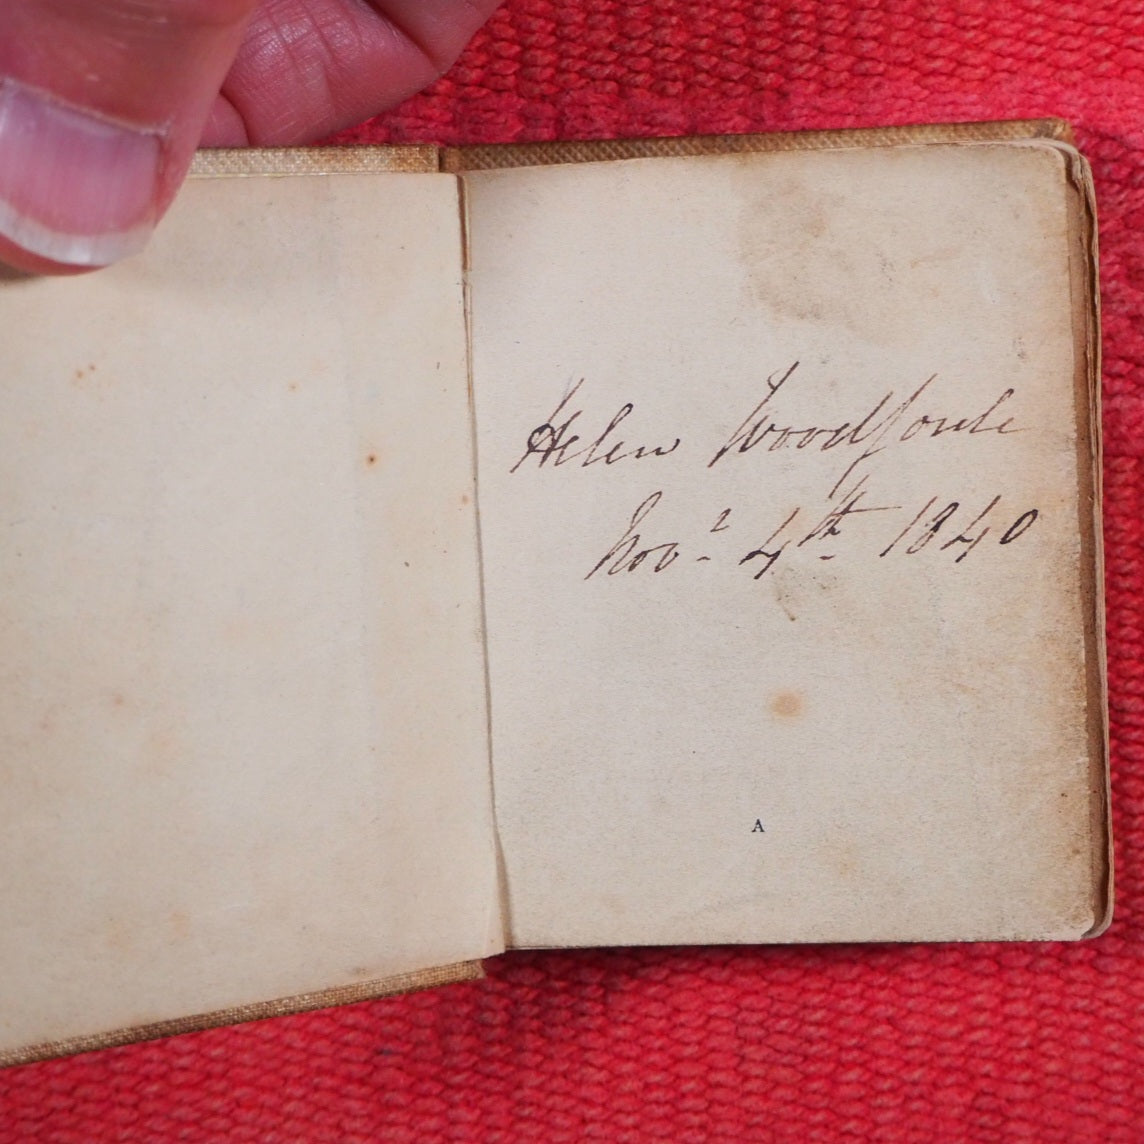 Helen Woodforde
Novr 4th 1840
A